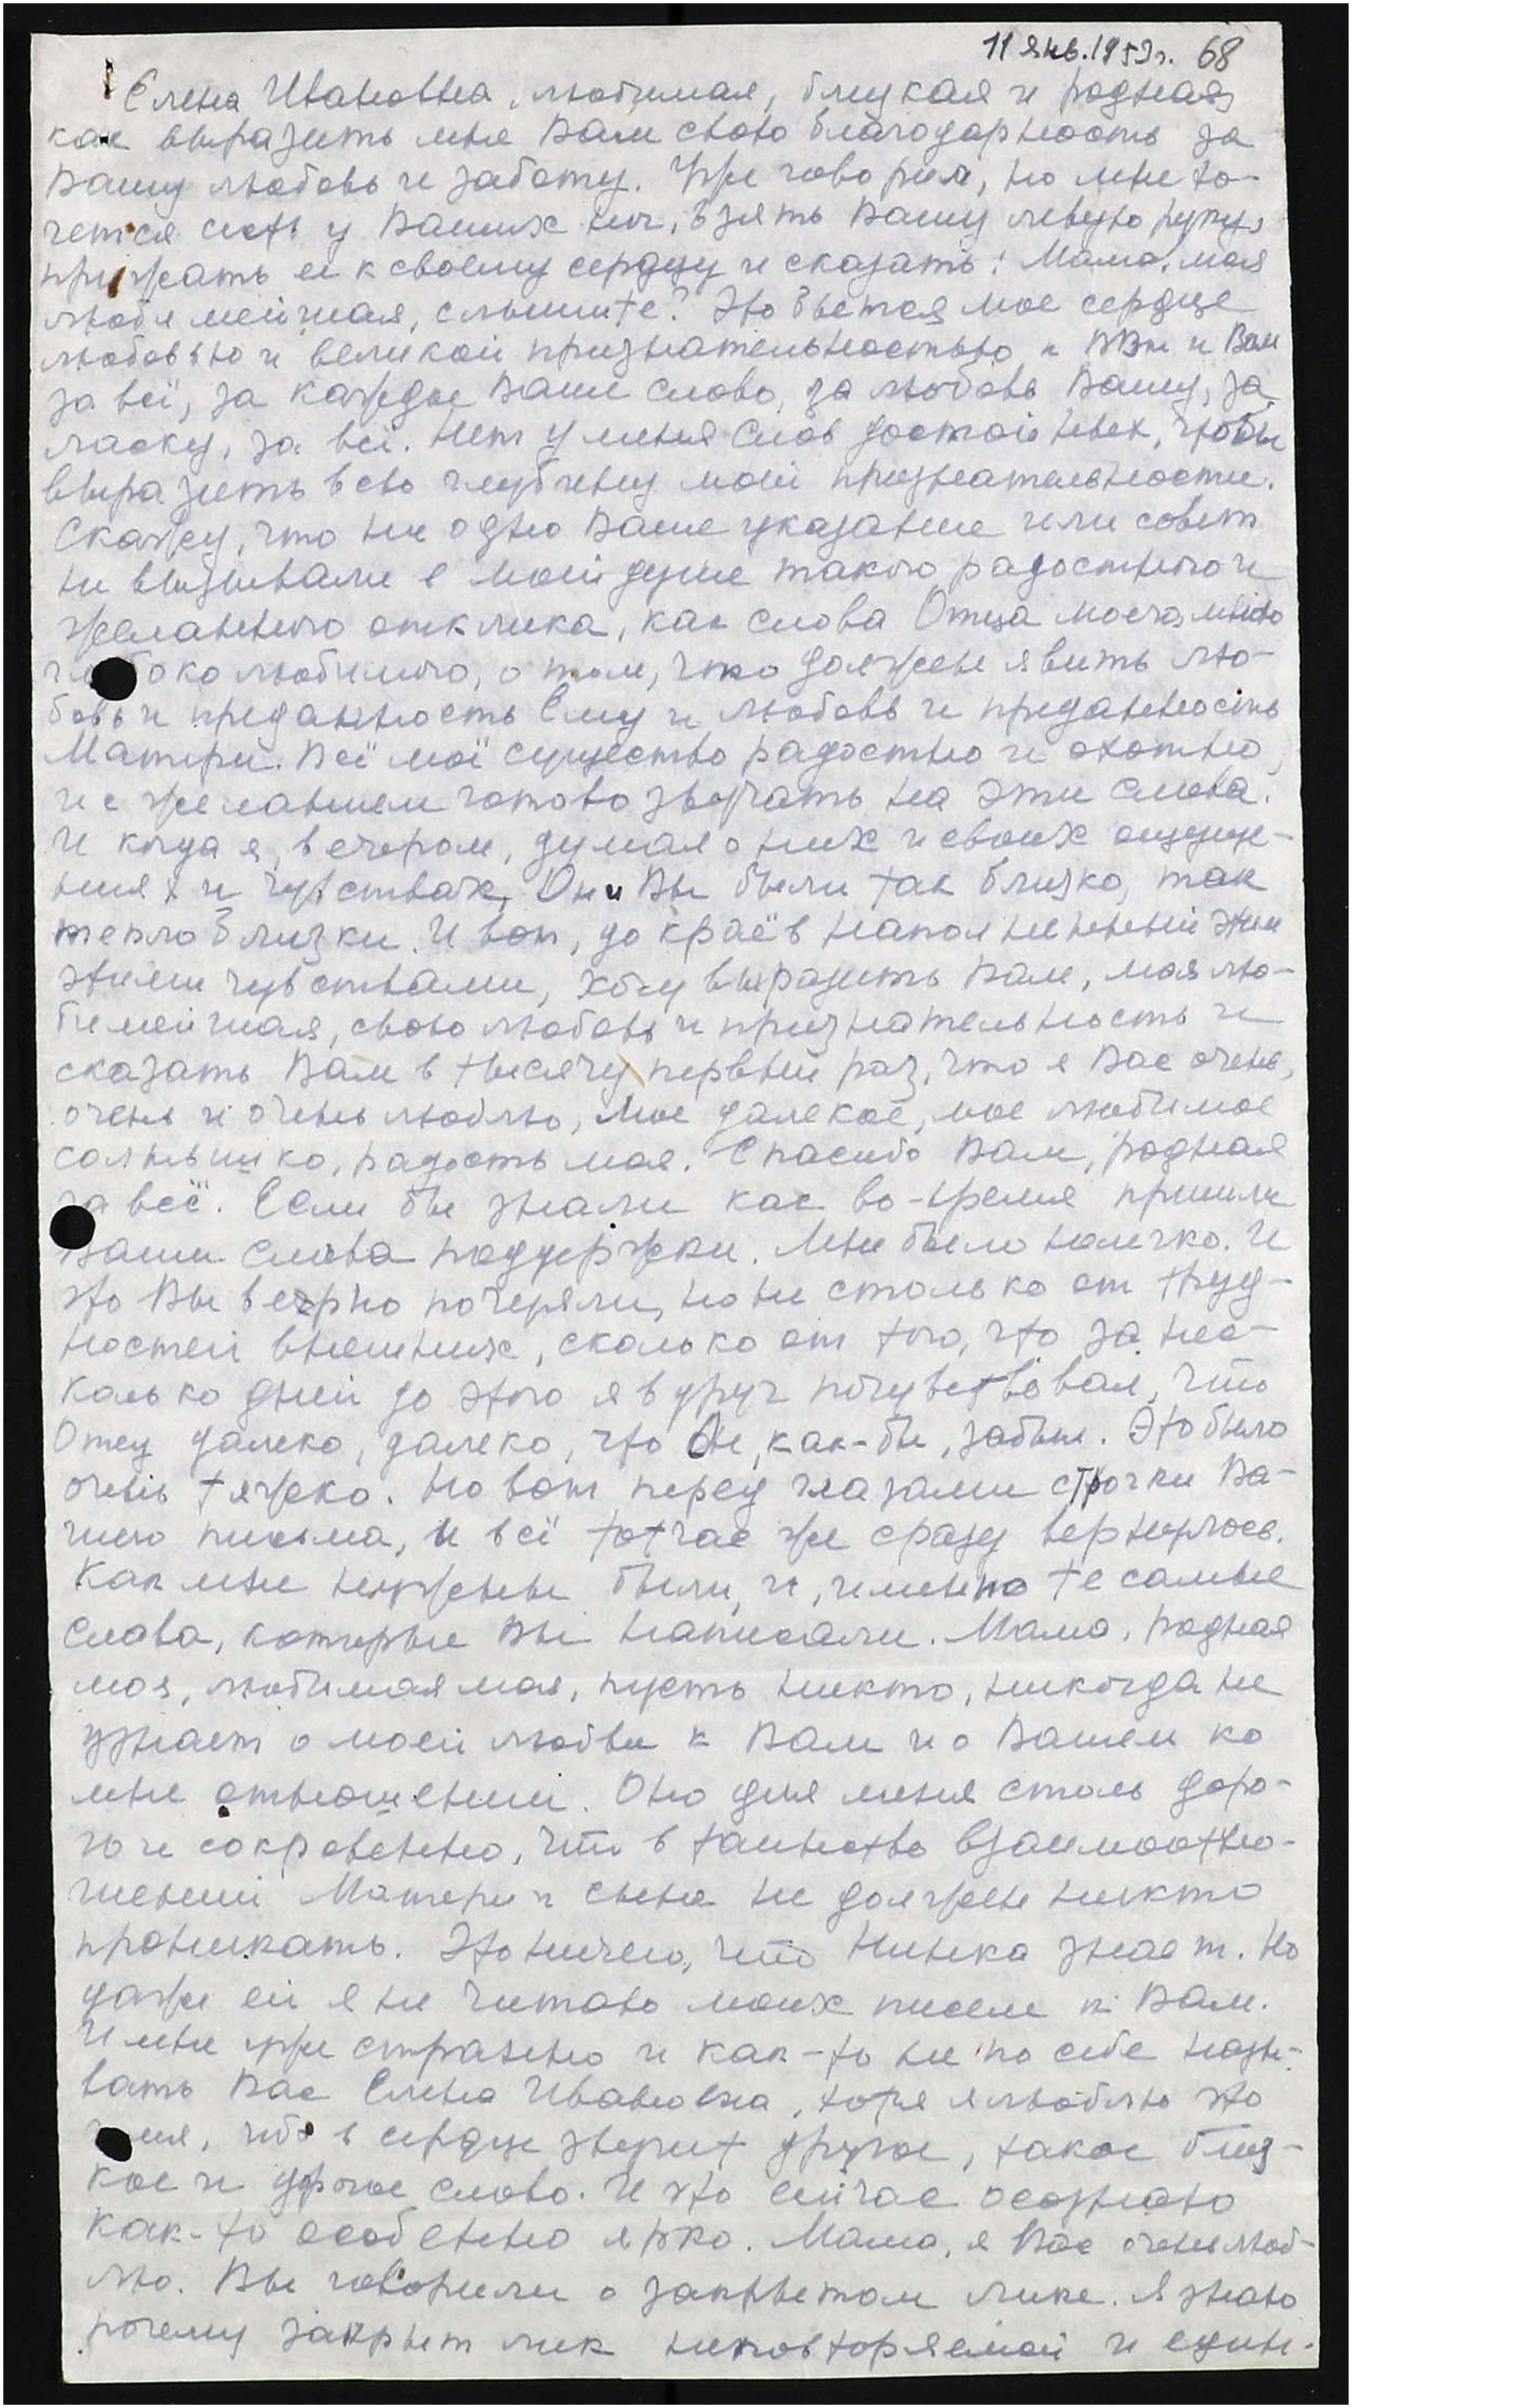 11 янв. 1953 г. 68
Елена Ивановна, любимая, близкая и родная,
как выразить мне Вам свою благодарность за
Вашу любовь и заботу. Уже говорил, но мне хо-
чется сесть у Ваших ног, взять Вашу левую руку,
прижать ее к своему сердцу и сказать: Мама, моя
любимейшая, слышите? Это бьется мое сердце
любовью и великой признательностью к ВВл и Вам
за всё, за каждое Ваше слово, за любовь Вашу, за
ласку, за всё. Нет у меня слов достойных, чтобы
выразить всю глубину моей признательности.
Скажу, что ни одно Ваше указание или совет
не вызывали в моей душе такого радостного и
желанного отклика, как слова Отца моего, мною
глубоко любимого, о том, что должен явить лю-
бовь и преданность Ему и любовь и преданность
Матери. Всё моё существо радостно и охотно,
и с желанием готово звучать на эти слова.
И когда я, вечером, думал о них и своих ощуще-
ниях и чувствах, Он и Вы были так близко, так
тепло близки. И вот, до краёв наполненный этим
этими чувствами, хочу выразить Вам, моя лю-
бимейшая, свою любовь и признательность и
сказать Вам в тысячу первый раз, что я Вас очень,
очень и очень люблю, мое далекое, мое любимое
солнышко, радость моя. Спасибо Вам, родная
за всё. Если бы знали как во-время пришли
Ваши слова поддержки. Мне было нелегко. И
это Вы верно почуяли, но не столько от труд-
ностей внешних, сколько от того, что за нес-
колько дней до этого я вдруг почувствовал, что
Отец далеко, далеко, что Он, как-бы, забыл. Это было
очень тяжко. Но вот перед глазами строчки Ва-
шего письма, и всё тотчас же сразу вернулось.
Как мне нужны были, и, именно те самые
слова, которые Вы написали. Мама, родная
моя, любимая моя, пусть никто, никогда не
узнает о моей любви к Вам и о Вашем ко
мне отношении. Оно для меня столь доро-
го и сокровенно, что в таинство взаимоотно-
шений Матери и сына не должен никто
проникать. Это ничего, что Нинка знает. Но
даже ей я не читаю моих писем к Вам.
И мне уже странно и как-то не по себе назы-
вать Вас Елена Ивановна, хотя я люблю это
имя, ибо в сердце звучит другое, такое близ-
кое и другое слово. И это сейчас осознаю
как-то особенно ярко. Мама, я Вас очень люб-
лю. Вы говорили о закрытом лике. Я знаю
почему закрыт лик неповторяемой и един-